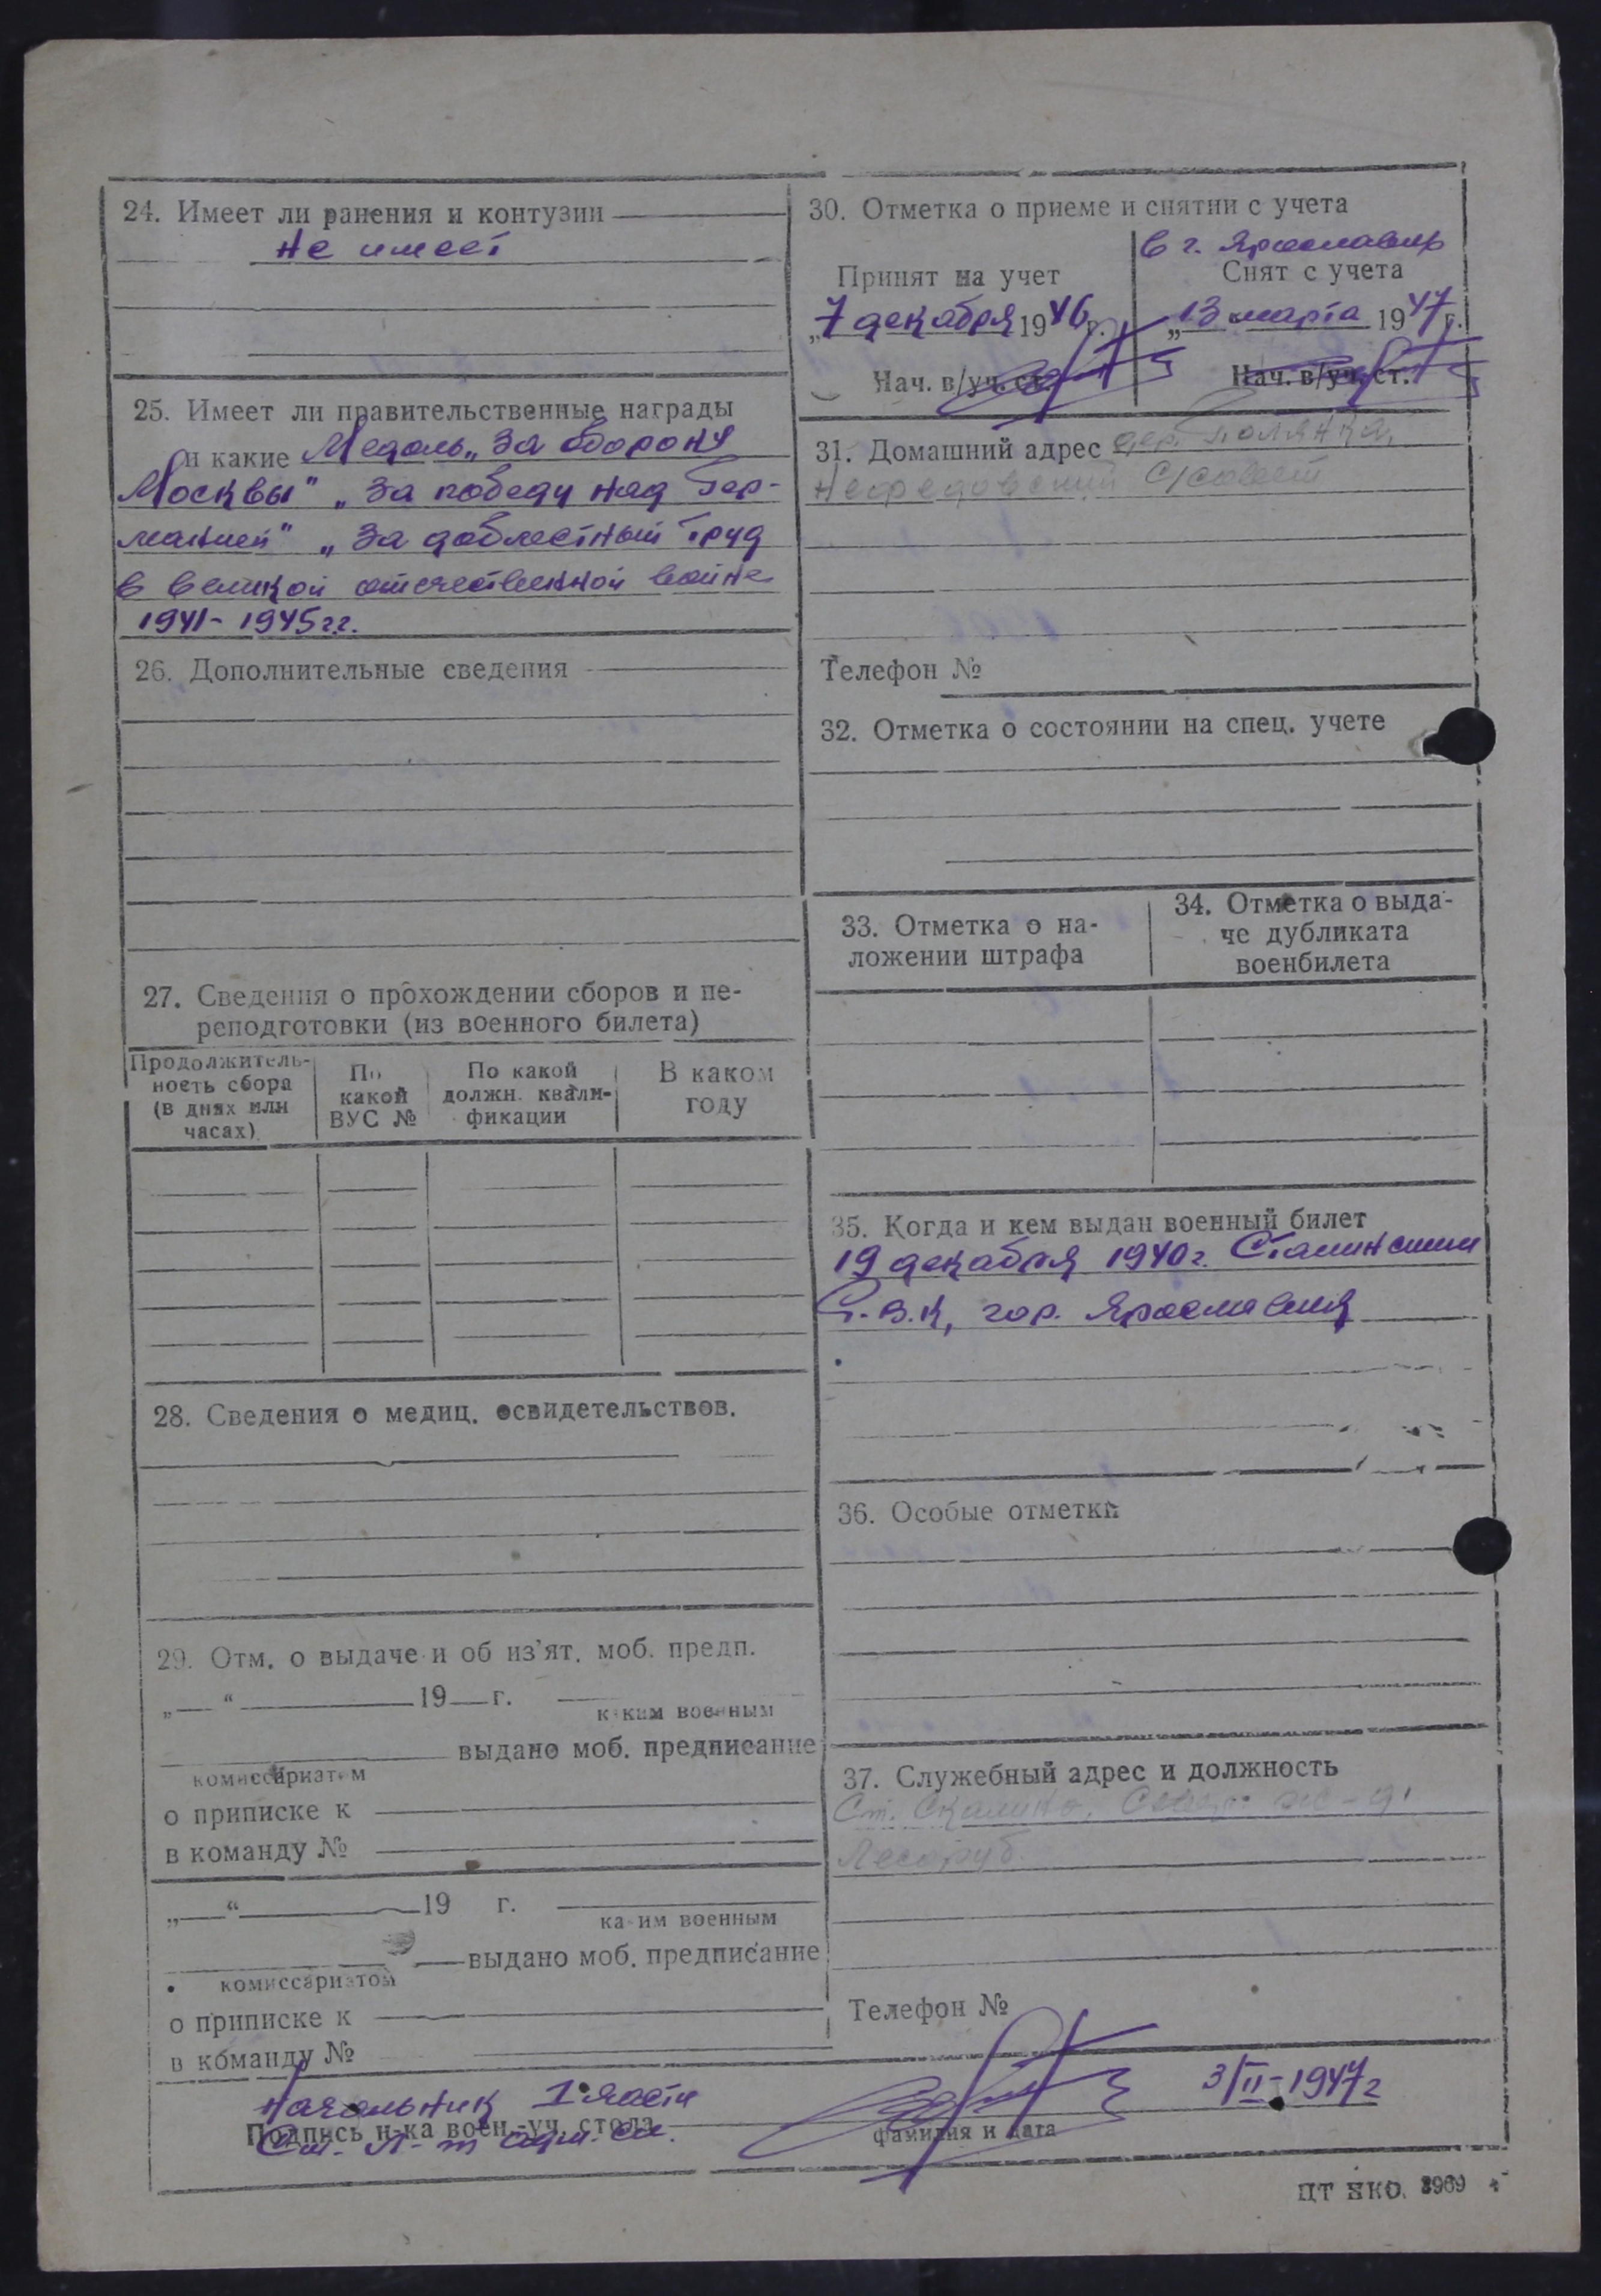 24. Имеет ли ранения и контузии
не имеет
25. Имеет ли правительственные награды
и какие Медаль „За оборону
Москвы" „За победу над Гер-
манией" „За доблестный труд
в великой отечественной войне
1941-1945гг.
26. Дополнительные сведения
27. Сведения о прохождении сборов и пе-
реподготовки (из военного билета)
Продолжитель-
ность сбора
(в днях или
часах)
По
какой
ВУС №
По какой
должн. квали-
фикации
В каком
году
28. Сведения о медиц. освидетельствов.
29. Отм. о выдаче и об из'ят. моб. предп.
„ “ 19 г.
каким военным
выдано моб. предписание
комиссариатом
о приписке к
в команду №
„ “ 19 г.
каким военным
выдано моб. предписание
комиссариатом
о приписке к
в команду №
30. Отметка о приеме и снятии с учета
в г. Ярославль
Принят на учет
Снят с учета
„7 декабря 1946 г.
„13 “ марта 1947 г.
Нач. в/уч. ст.
Нач. в/уч. ст.
31. Домашний адрес дер. Полянка,
с/совет
Телефон №
32. Отметка о состоянии на спец. учете
33. Отметка о на-
ложении штрафа
34. Отметка о выда-
че дубликата
военбилета
35. Когда и кем выдан военный билет
19 декабря 1940г. Сталинским
Р.В.К, гор. Ярославля
36. Особые отметки
37. Служебный адрес и должность
Ст. Скалино, Север. ж-д.
Лесоруб.
Телефон №
Начальник 1 части
Подпись н-ка воен.-уч. стола
Ст. Л-т адм. сл.
фамилия и дата
3/II-1947г
ЦТ НКО. 3969